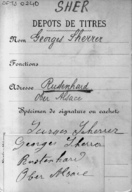 SHER
DEPOTS DE TITRES
Nom Georges Sherrer
Fonctions
Adresse Rustenhard
Ober Alsace
Spécimen de signature ou cachet
Georges Sherrer
Georges
Rustenhard
Ober Alsace